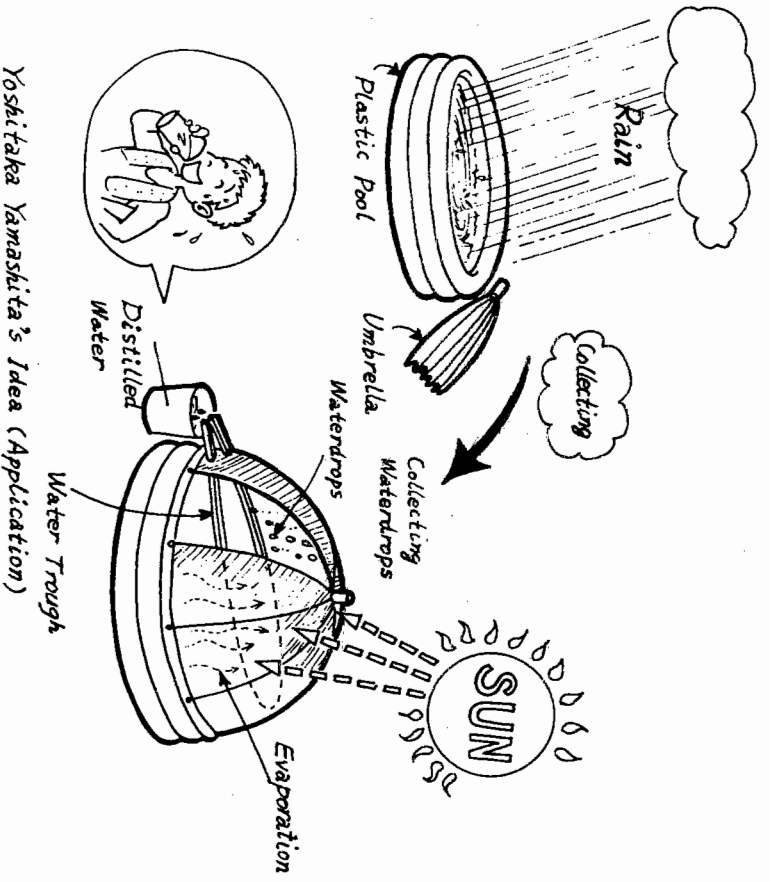 Rain
Plastic Pool
Umbrella
Collecting
Collecting
Waterdrops
SUN
Waterdrops
Distilled
Water
Water Trough
Evaporation
Yoshitaka Yamashita's Idea (Application)